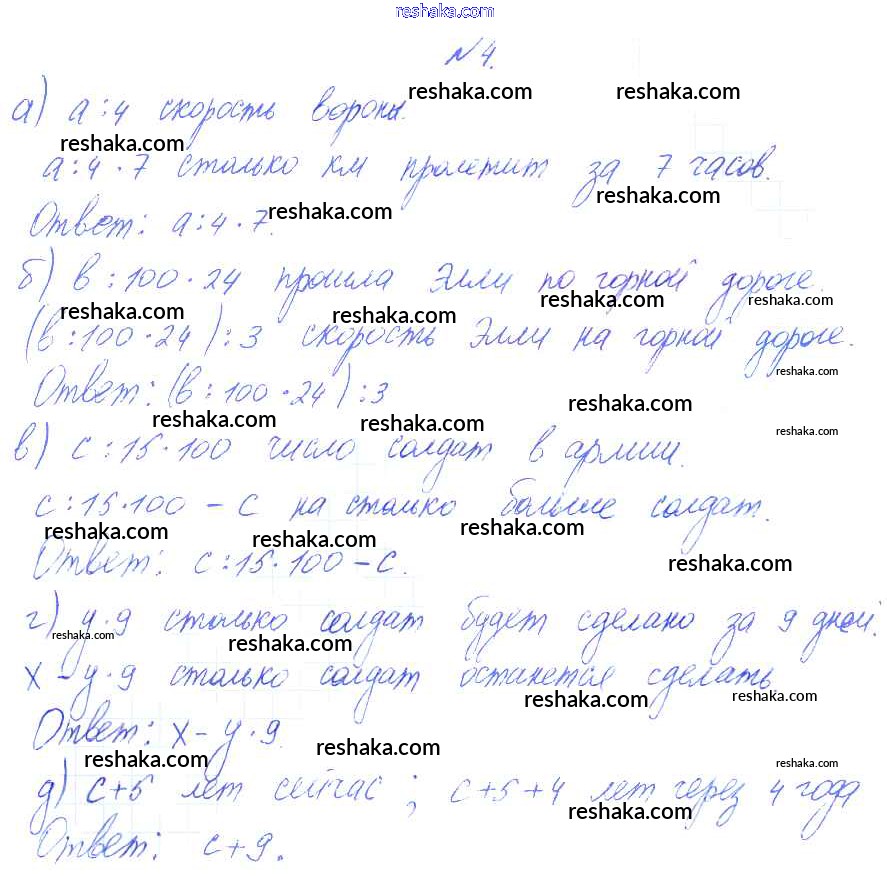 reshaka.com
№4.
reshaka.com reshaka.com
а) а:4 скорость вороны.
reshaka.com
а:4·7 столько км пролетит за 7 часов.
reshaka.com
reshaka.com
Ответ: а:4·7.
б) в:100·24 прошла Элли по горной дороге.
reshaka.com reshaka.com reshaka.com reshaka.com
(в:100·24):3 скорость Элли на горной дороге.
reshaka.com
Ответ: (в:100·24):3
reshaka.com
reshaka.com reshaka.com reshaka.com
в) с:15·100 число солдат в армии.
с:15·100 - с на столько больше солдат.
reshaka.com reshaka.com reshaka.com
Ответ: с:15·100-с.
reshaka.com
г) у·9 столько солдат будет сделано за 9 дней.
reshaka.com reshaka.com
х-у·9 столько солдат останется сделать
reshaka.com reshaka.com
Ответ: х-у·9.
reshaka.com reshaka.com reshaka.com
д) с+5 лет сейчас; с+5+4 лет через 4 года
reshaka.com
Ответ: с+9.
reshaka.com